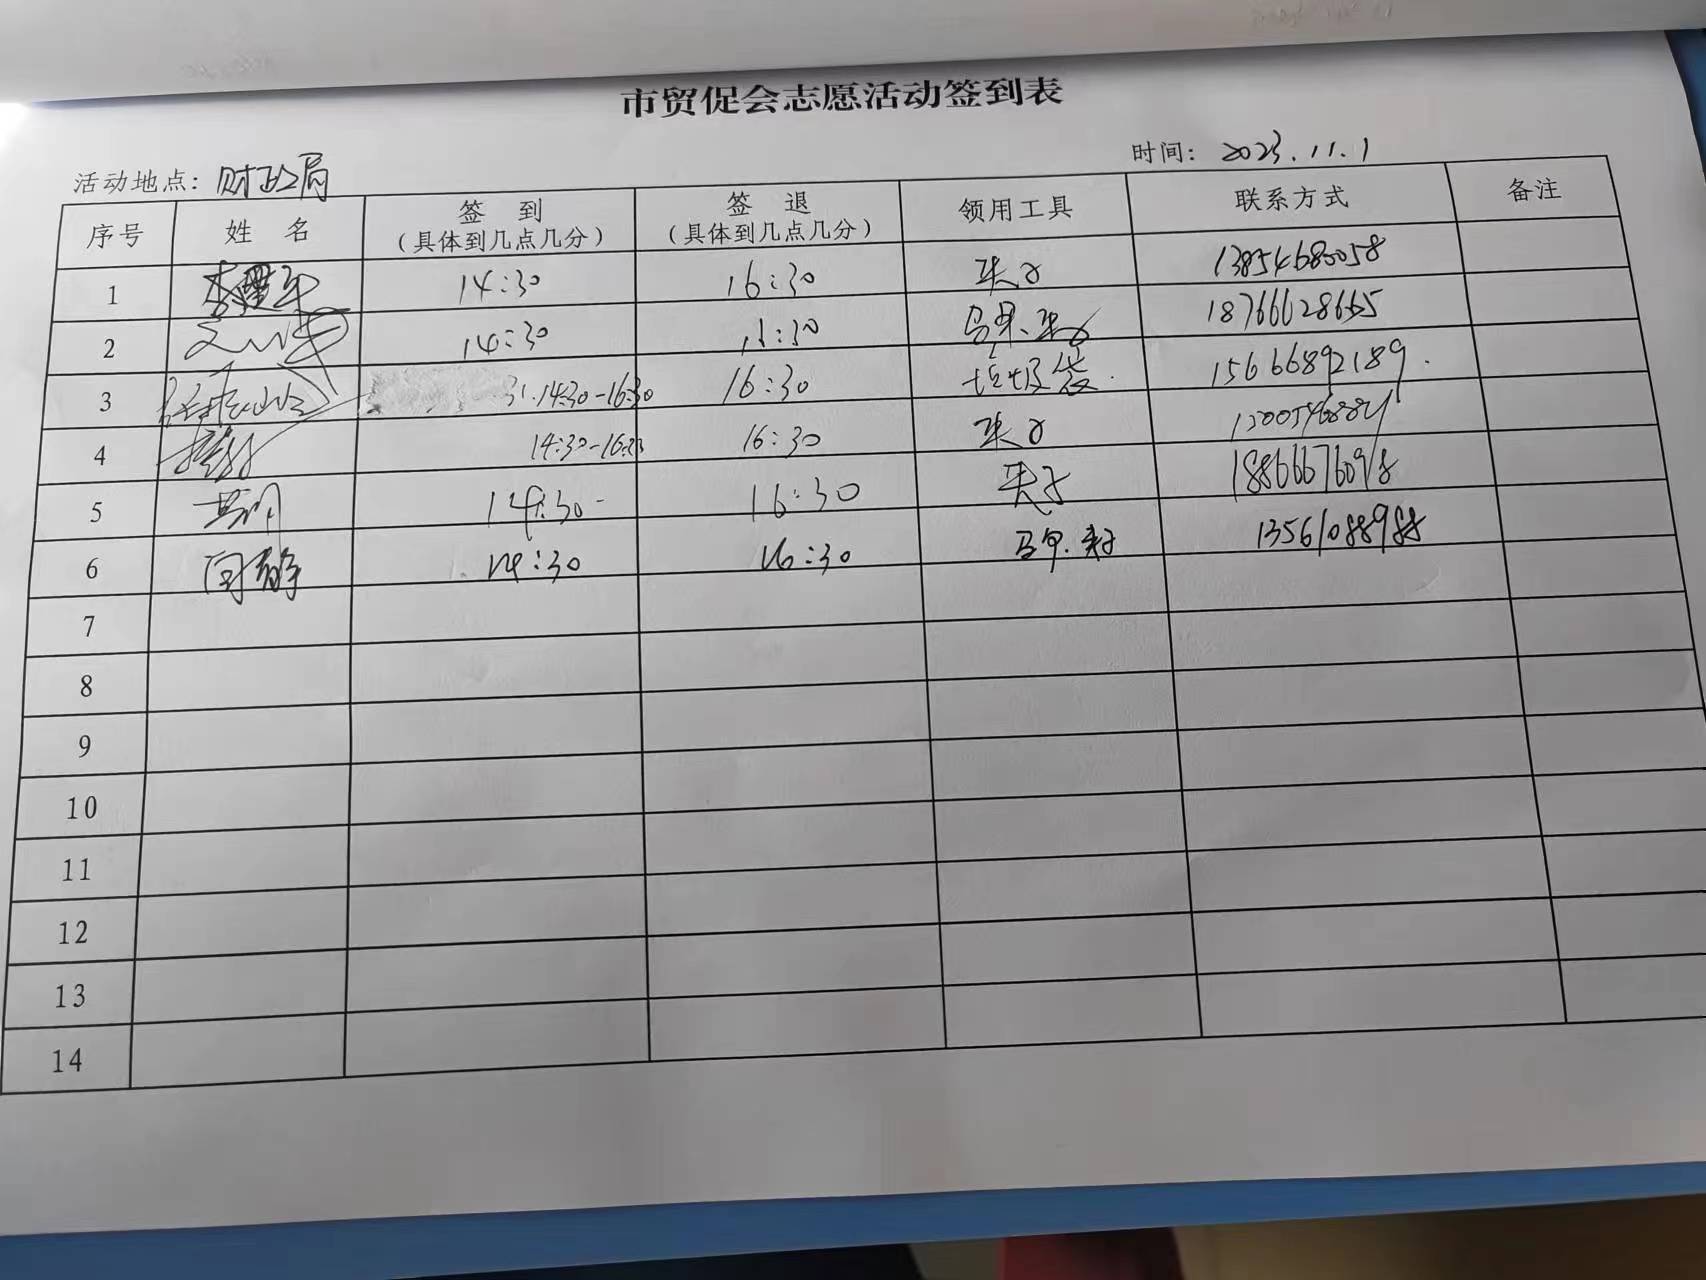 市贸促会志愿活动签到表
活动地点：财政局 时间：2023.11.1
序号 姓 名 签 到（具体到几点几分） 签 退（具体到几点几分） 领用工具 联系方式 备注
1 14:30 16:30 夹子
2 14:30 马甲、夹子 18766628665
3 14:30-16:30 16:30 垃圾袋 15666892189
4 14:30-16:30 16:30 夹子
5 14:30 16:30 夹子
6 14:30 16:30 马甲.夹子 13561088988
7
8
9
10
11
12
13
14